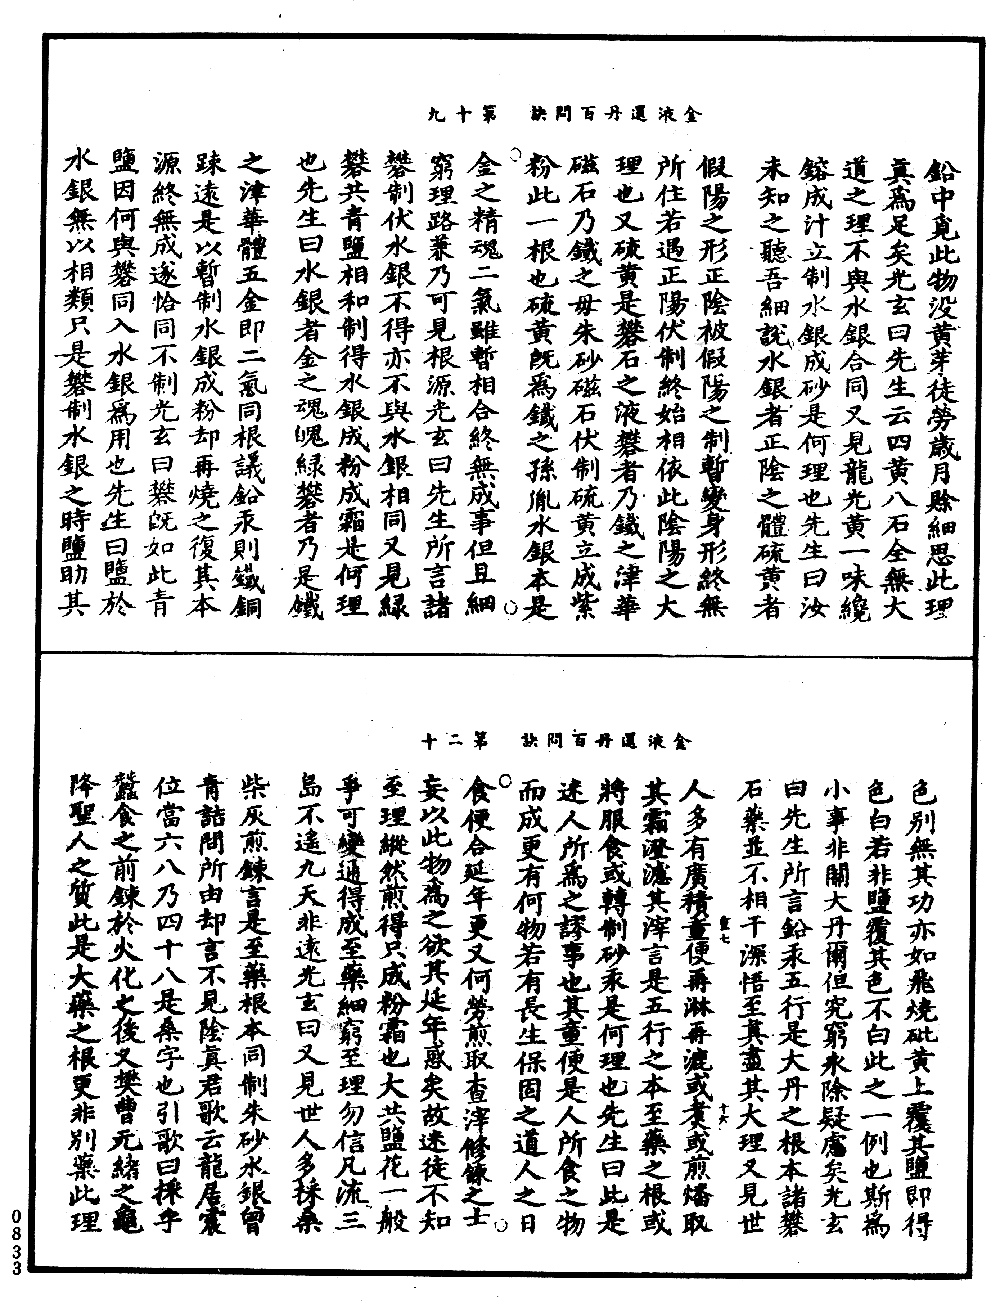 金液還丹百問訣　第十九
鉛中覓此物没黄芽徒勞歲月賒細思此理
真爲足矣光玄曰先生云四黄八石全無大
道之理不與水銀合同又見龍光黄一味纔
鎔成汁立制水銀成砂是何理也先生曰汝
未知之聽吾細說水銀者正陰之體硫黄者
假陽之形正陰被假陽之制暫變身形終無
所住若遇正陽伏制終始相依此陰陽之大
理也又硫黄是礬石之液礬者乃鐵之津華
磁石乃鐵之母朱砂磁石伏制硫黄立成紫
粉此一根也硫黄既爲鐵之孫胤水銀本是
金之精魂二氣雖暫相合終無成事但且細
窮理路兼乃可見根源光玄曰先生所言諸
礬制伏水銀不得亦不與水銀相同又見緑
礬共青鹽相和制得水銀成粉成霜是何理
也先生曰水銀者金之魂魄緑礬者乃是鐵
之津華體五金即二氣同根議鉛汞則鐵銅
踈遠是以暫制水銀成粉却再燒之復其本
源終無成遂恰同不制光玄曰礬既如此青
鹽因何與礬同入水銀爲用也先生曰鹽於
水銀無以相類只是礬制水銀之時鹽助其
金液還丹百問訣　第二十
色别無其功亦如飛燒砒黄上覆其鹽即得
色白若非鹽覆其色不白此之一例也斯爲
小事非關大丹爾但究窮永除疑慮矣光玄
曰先生所言鉛汞五行是大丹之根本諸礬
石藥並不相干深悟至真盡其大理又見世
人多有廣積童便再淋再漉或煑或煎燔取
其霜澄濾其滓言是五行之本至藥之根或
將服食或轉制砂汞是何理也先生曰此是
迷人所爲之謬事也其童便是人所食之物
而成更有何物若有長生保固之道人之日
食便合延年更又何勞煎取查滓修鍊之士
妄以此物爲之欲其延年惑矣故迷徒不知
至理縱然煎得只成粉霜也大共鹽花一般
爭可變通得成至藥細窮至理勿信凡流三
島不遥九天非遠光玄曰又見世人多採桑
柴灰煎鍊言是至藥根本同制朱砂水銀曾
青詰問所由却言不見陰真君歌云龍居震
位當六八乃四十八是桑字也引歌曰採乎
蠶食之前鍊於火化之後又樊曹元緒之龜
降聖人之質此是大藥之根更非别藥此理
重七
十六
0833